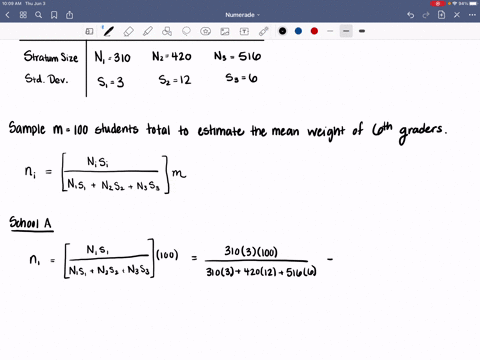 10:09 AM Thu Jun 3
94%
Numerade
Stratum Size N₁ = 310 N₂ = 420 N₃ = 516
Std. Dev. S₁ = 3 S₂ = 12 S₃ = 6
Sample m = 100 students total to estimate the mean weight of 6th graders.
nᵢ = [NᵢSᵢ / (N₁S₁ + N₂S₂ + N₃S₃)] m
School A
n₁ = [N₁S₁ / (N₁S₁ + N₂S₂ + N₃S₃)] (100) = 310(3)(100) / (310(3) + 420(12) + 516(6)) -